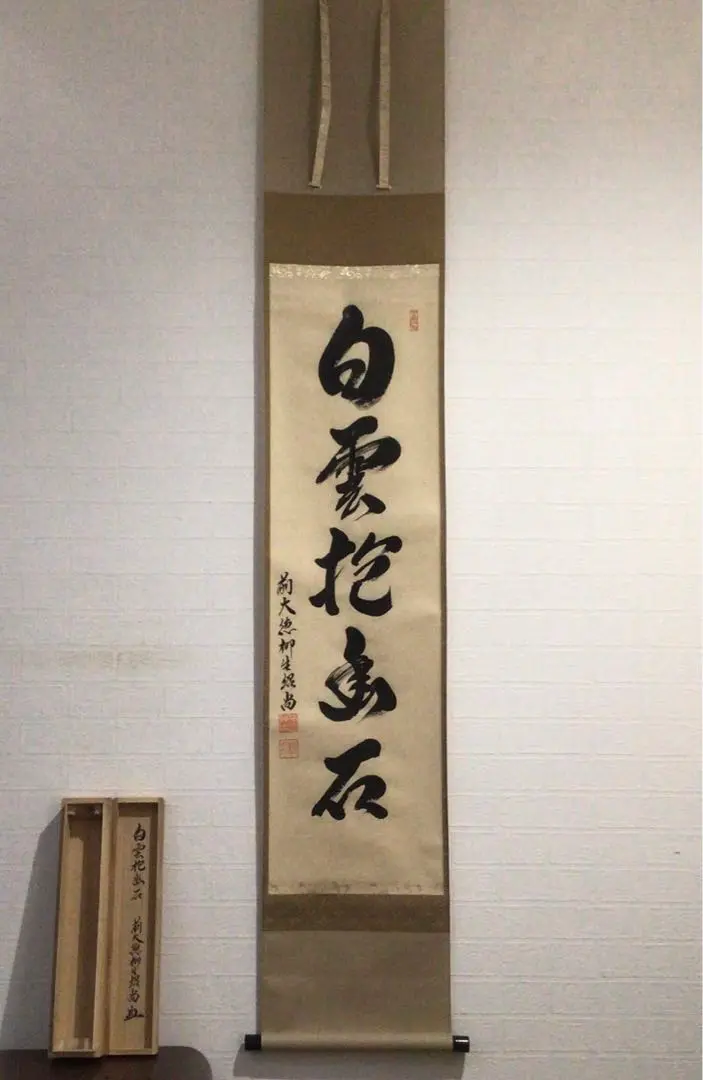 白雲抱幽石
前大德柳生紹尚
白雲抱幽石
前大德柳生紹尚